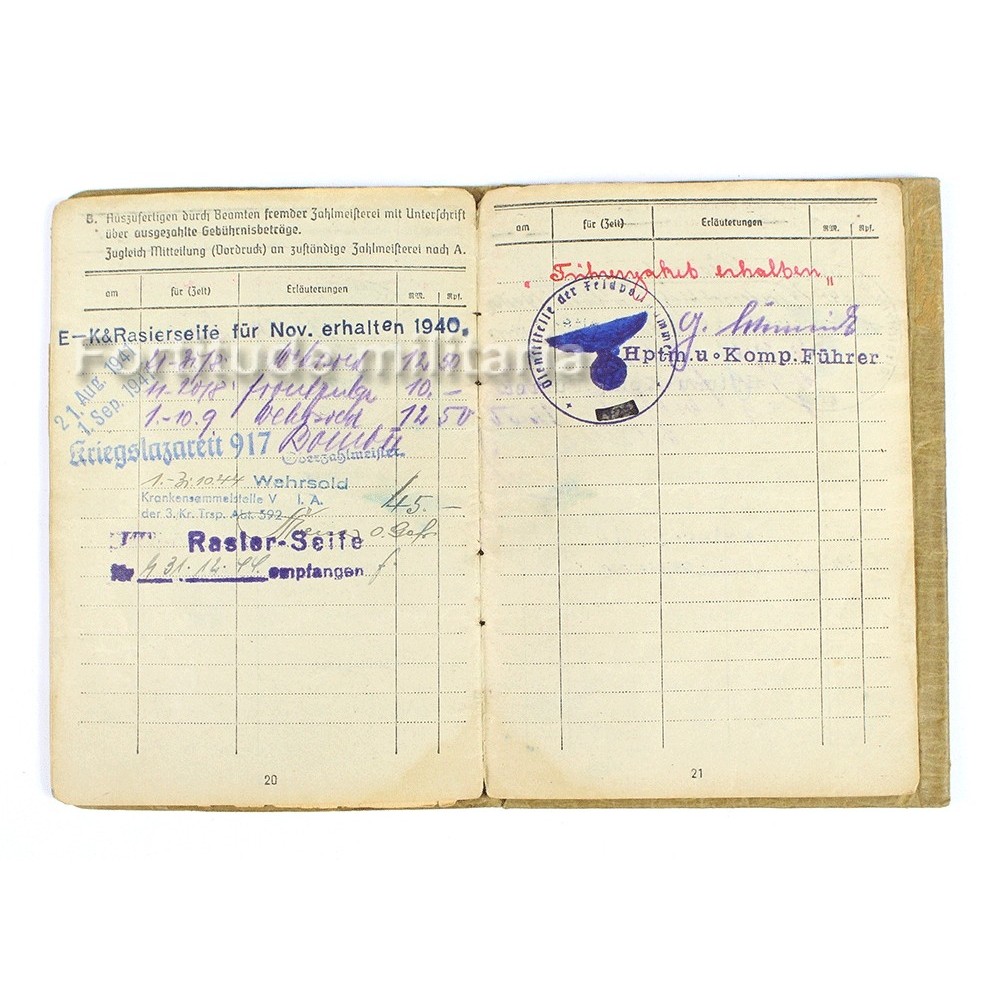 B. Auszufertigen durch Beamten fremder Zahlmeisterei mit Unterschrift
über ausgezahlte Gebührnisbeträge.
Zugleich Mitteilung (Vordruck) an zuständige Zahlmeisterei nach A.
am für (Zeit) Erläuterungen RM. Rpf.
E-K&Rasierseife für Nov. erhalten 1940.
21. Aug. 194
1. Sep. 194
11.-20./8. Frontzulage 10.-
1.-10.9. Wehrsold 12 50
Kriegslazarett 917
Oberzahlmeister
1.-31.10.44 Wehrsold 45.-
Krankensammelstelle V I. A.
der 3. Kr. Trsp. Abt. 592
Rasier-Seife
31.12.44 empfangen
20
am für (Zeit) Erläuterungen RM. Rpf.
"Führerpaket erhalten"
Dienststelle der Feldpost
Hptm. u. Komp. Führer
21